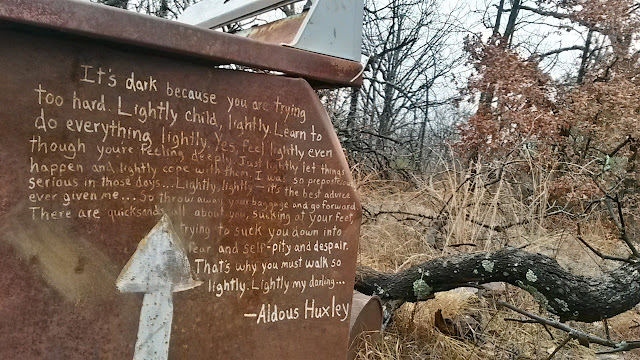 It's dark because you are trying
too hard. Lightly child, lightly. Learn to
do everything lightly. Yes, feel lightly even
though you're feeling deeply. Just lightly let things
happen and lightly cope with them. I was so preposterously
serious in those days... Lightly, lightly – it's the best advice
ever given me... So throw away your baggage and go forward.
There are quicksands all about you, sucking at your feet,
trying to suck you down into
fear and self-pity and despair.
That's why you must walk so
lightly. Lightly my darling...
—Aldous Huxley